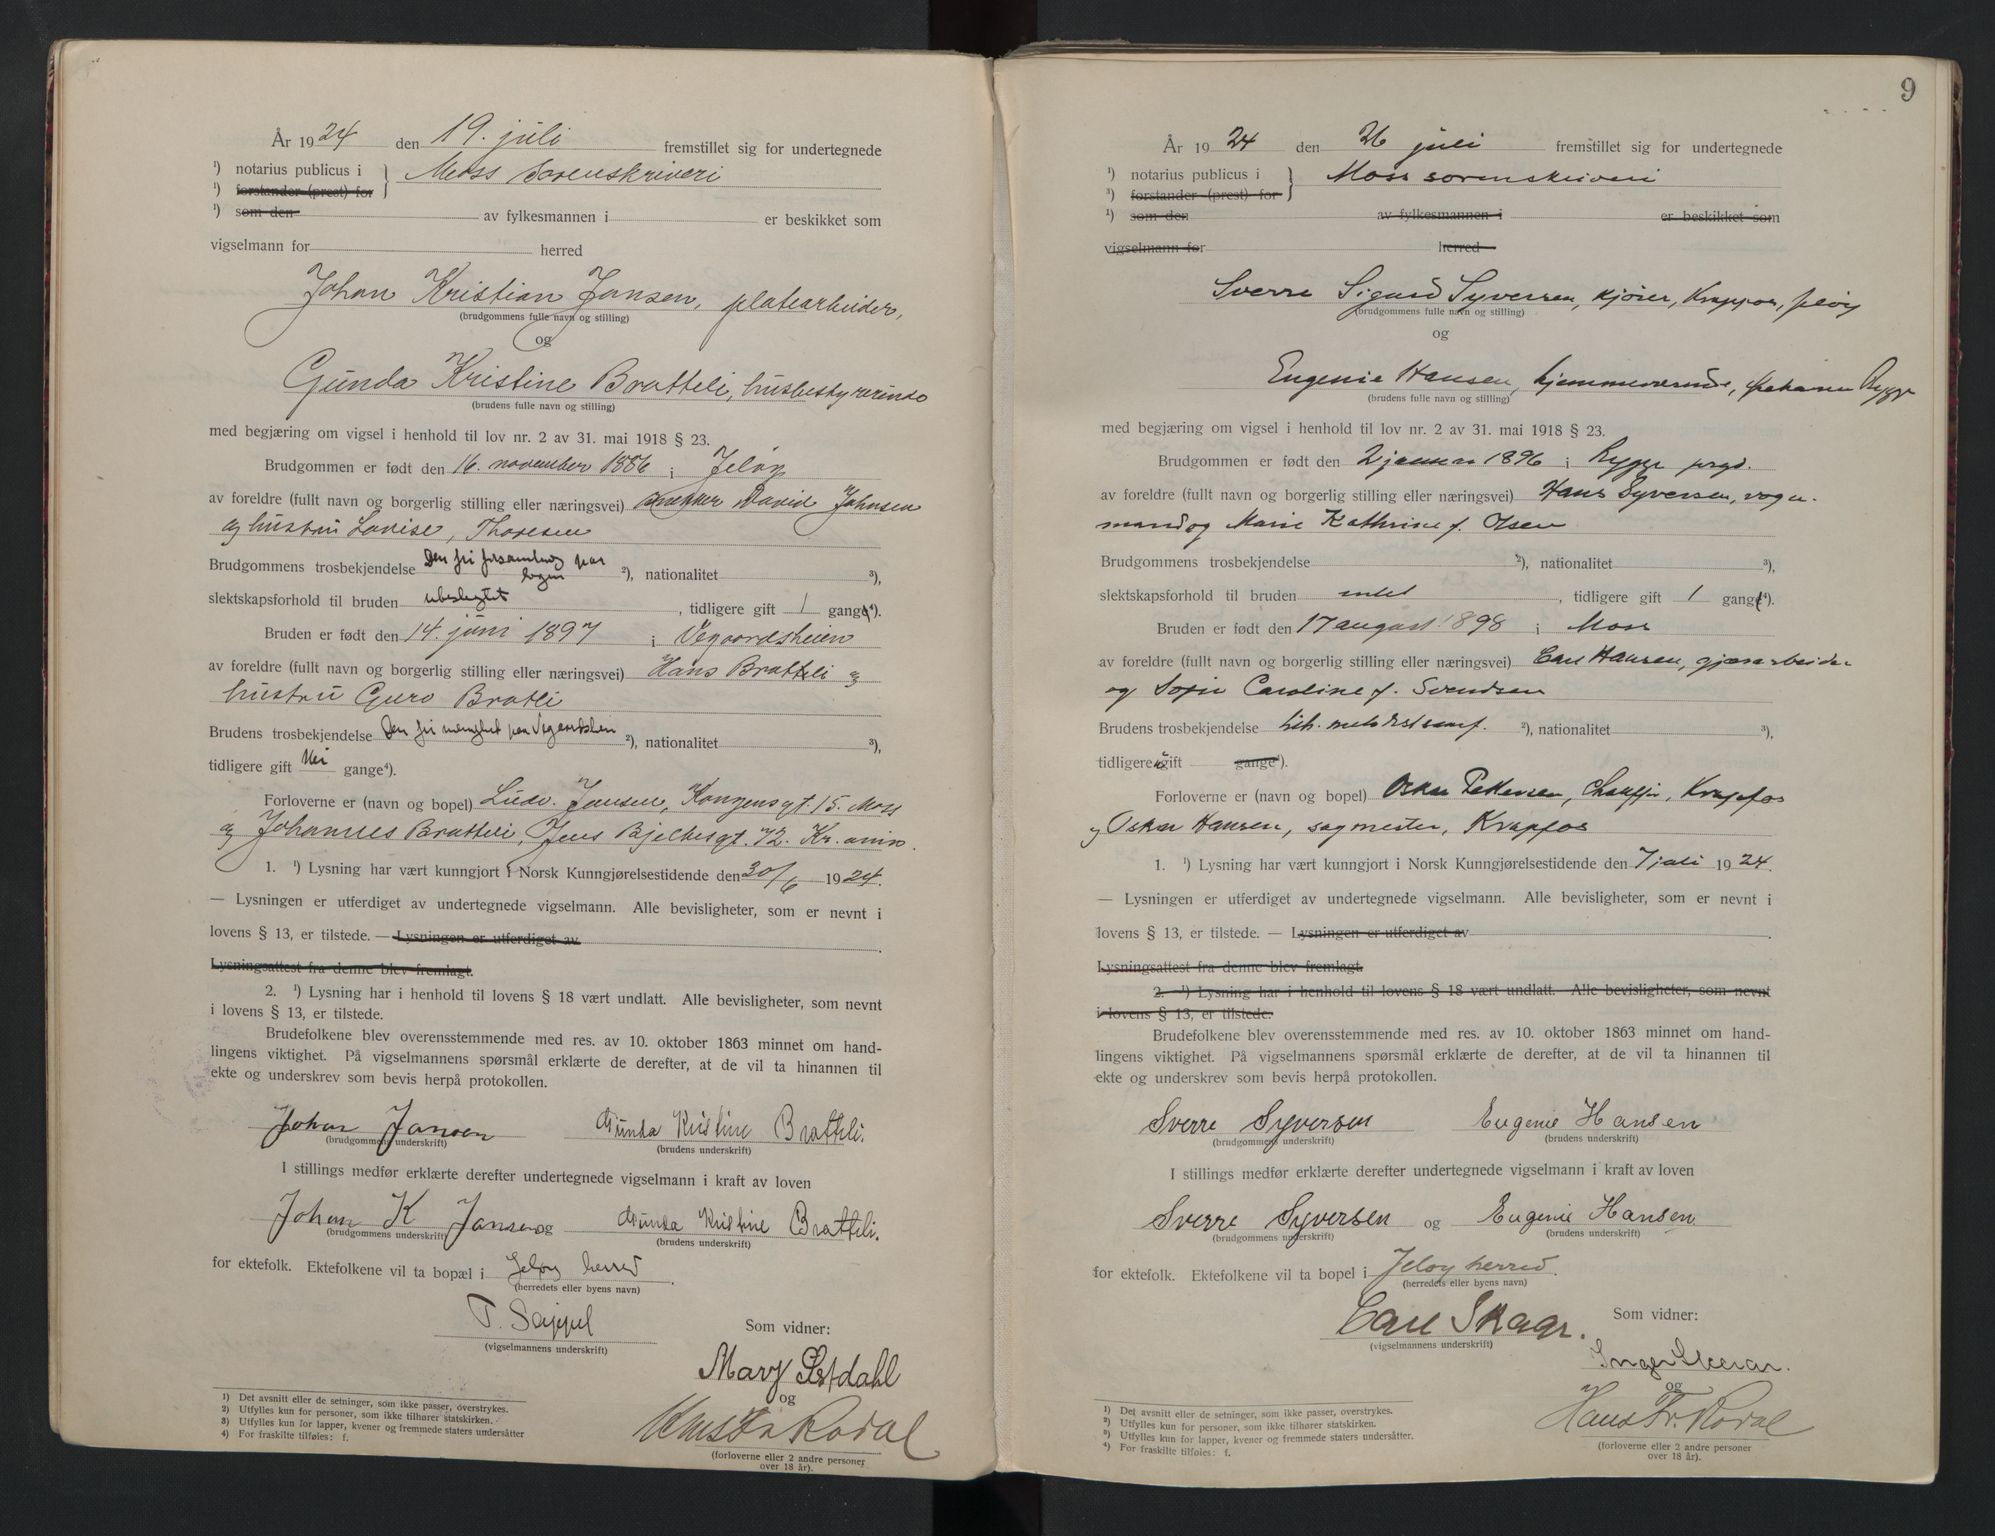 År 1924 den 19. juli fremstillet sig for undertegnede
¹) notarius publicus i } Moss Sorenskriveri
¹) forstander (prest) for
¹) som den av fylkesmannen i er beskikket som
vigselmann for herred
Johan Kristian Jansen, platearbeider,
(brudgommens fulle navn og stilling)
og
Gunda Kristine Bratteli, husbestyrerinde
(brudens fulle navn og stilling)
med begjæring om vigsel i henhold til lov nr. 2 av 31. mai 1918 § 23.
Brudgommen er født den 16. november 1886 i Jeløy
av foreldre (fullt navn og borgerlig stilling eller næringsvei) David Johnsen
og hustru Lovise, Thoresen
Brudgommens trosbekjendelse Den fri forsamling paa ²), nationalitet ³),
slektskapsforhold til bruden ubeslegtet, tidligere gift 1 gange⁴).
Bruden er født den 14. juni 1897 i Vegaardsheien
av foreldre (fullt navn og borgerlig stilling eller næringsvei) Hans Bratteli og
hustru Guro Bratli
Brudens trosbekjendelse Den fri menighet paa Vegardsheien ²), nationalitet ³),
tidligere gift Nei gange⁴).
Forloverne er (navn og bopel) Ludv. Jansen, Kongensgt. 15. Moss
og Johannes Bratteli, Jens Bjelkesgt. 72. Kr.ania.
1. ¹) Lysning har vært kunngjort i Norsk Kunngjørelsestidende den 30/6 1924.
— Lysningen er utferdiget av undertegnede vigselmann. Alle bevisligheter, som er nevnt i
lovens § 13, er tilstede. — Lysningen er utferdiget av .
Lysningsattest fra denne blev fremlagt.
2. ¹) Lysning har i henhold til lovens § 18 vært undlatt. Alle bevisligheter, som nevnt
i lovens § 13, er tilstede.
Brudefolkene blev overensstemmende med res. av 10. oktober 1863 minnet om hand-
lingens viktighet. På vigselmannens spørsmål erklærte de derefter, at de vil ta hinannen til
ekte og underskrev som bevis herpå protokollen.
Johan Jansen Gunda Kristine Bratteli.
(brudgommens underskrift) (brudens underskrift)
I stillings medfør erklærte derefter undertegnede vigselmann i kraft av loven
Johan K Jansen og Gunda Kristine Bratteli.
(brudgommens underskrift) (brudens underskrift)
for ektefolk. Ektefolkene vil ta bopæl i Jeløy herred.
(herredets eller byens navn)
T. Sappel
(vigselmannens underskrift)
Som vidner:
Mary Østdahl
og
Hans Fr Rodal
(forloverne eller 2 andre personer
over 18 år).
¹) Det avsnitt eller de setninger, som ikke passer, overstrykes.
²) Utfylles kun for personer, som ikke tilhører statskirken.
³) Utfylles kun for lapper, kvener og fremmede staters undersåtter
⁴) For fraskilte tilføies: f.
9
År 1924 den 26 juli fremstillet sig for undertegnede
¹) notarius publicus i } Moss sorenskriveri
¹) forstander (prest) for
¹) som den av fylkesmannen i er beskikket som
vigselmann for herred
Sverre Sigurd Syversen, kjører, Krappos, Jeløy
(brudgommens fulle navn og stilling)
og
Eugenie Hansen, hjemmeværende, Rygge
(brudens fulle navn og stilling)
med begjæring om vigsel i henhold til lov nr. 2 av 31. mai 1918 § 23.
Brudgommen er født den 2 januar 1896 i Rygge prgd.
av foreldre (fullt navn og borgerlig stilling eller næringsvei) Hans Syversen, vogn-
mand og Marie Kathrine f. Olsen
Brudgommens trosbekjendelse ²), nationalitet ³),
slektskapsforhold til bruden intet, tidligere gift 1 gang⁴).
Bruden er født den 17 august 1898 i Moss
av foreldre (fullt navn og borgerlig stilling eller næringsvei) Carl Hansen, gjæsarbeider
og Sofie Caroline f. Svendsen
Brudens trosbekjendelse metodistsamf. ²), nationalitet ³),
tidligere gift gange⁴).
Forloverne er (navn og bopel) Oskar Pettersen, Chauffør, Krapfos
og Oskar Hansen, sagmester, Krapfos
1. ¹) Lysning har vært kunngjort i Norsk Kunngjørelsestidende den 7 juli 1924.
— Lysningen er utferdiget av undertegnede vigselmann. Alle bevisligheter, som er nevnt i
lovens § 13, er tilstede. — Lysningen er utferdiget av .
Lysningsattest fra denne blev fremlagt.
2. ¹) Lysning har i henhold til lovens § 18 vært undlatt. Alle bevisligheter, som nevnt
i lovens § 13, er tilstede.
Brudefolkene blev overensstemmende med res. av 10. oktober 1863 minnet om hand-
lingens viktighet. På vigselmannens spørsmål erklærte de derefter, at de vil ta hinannen til
ekte og underskrev som bevis herpå protokollen.
Sverre Syversen Eugenie Hansen
(brudgommens underskrift) (brudens underskrift)
I stillings medfør erklærte derefter undertegnede vigselmann i kraft av loven
Sverre Syversen og Eugenie Hansen
(brudgommens underskrift) (brudens underskrift)
for ektefolk. Ektefolkene vil ta bopel i Jeløy herred.
(herredets eller byens navn)
Carl Skaar.
(vigselmannens underskrift)
Som vidner:
Inger
og
Hans Fr. Rodal
(forloverne eller 2 andre personer
over 18 år).
¹) Det avsnitt eller de setninger, som ikke passer, overstrykes.
²) Utfylles kun for personer, som ikke tilhører statskirken.
³) Utfylles kun for lapper, kvener og fremmede staters undersåtter.
⁴) For fraskilte tilføies: f.